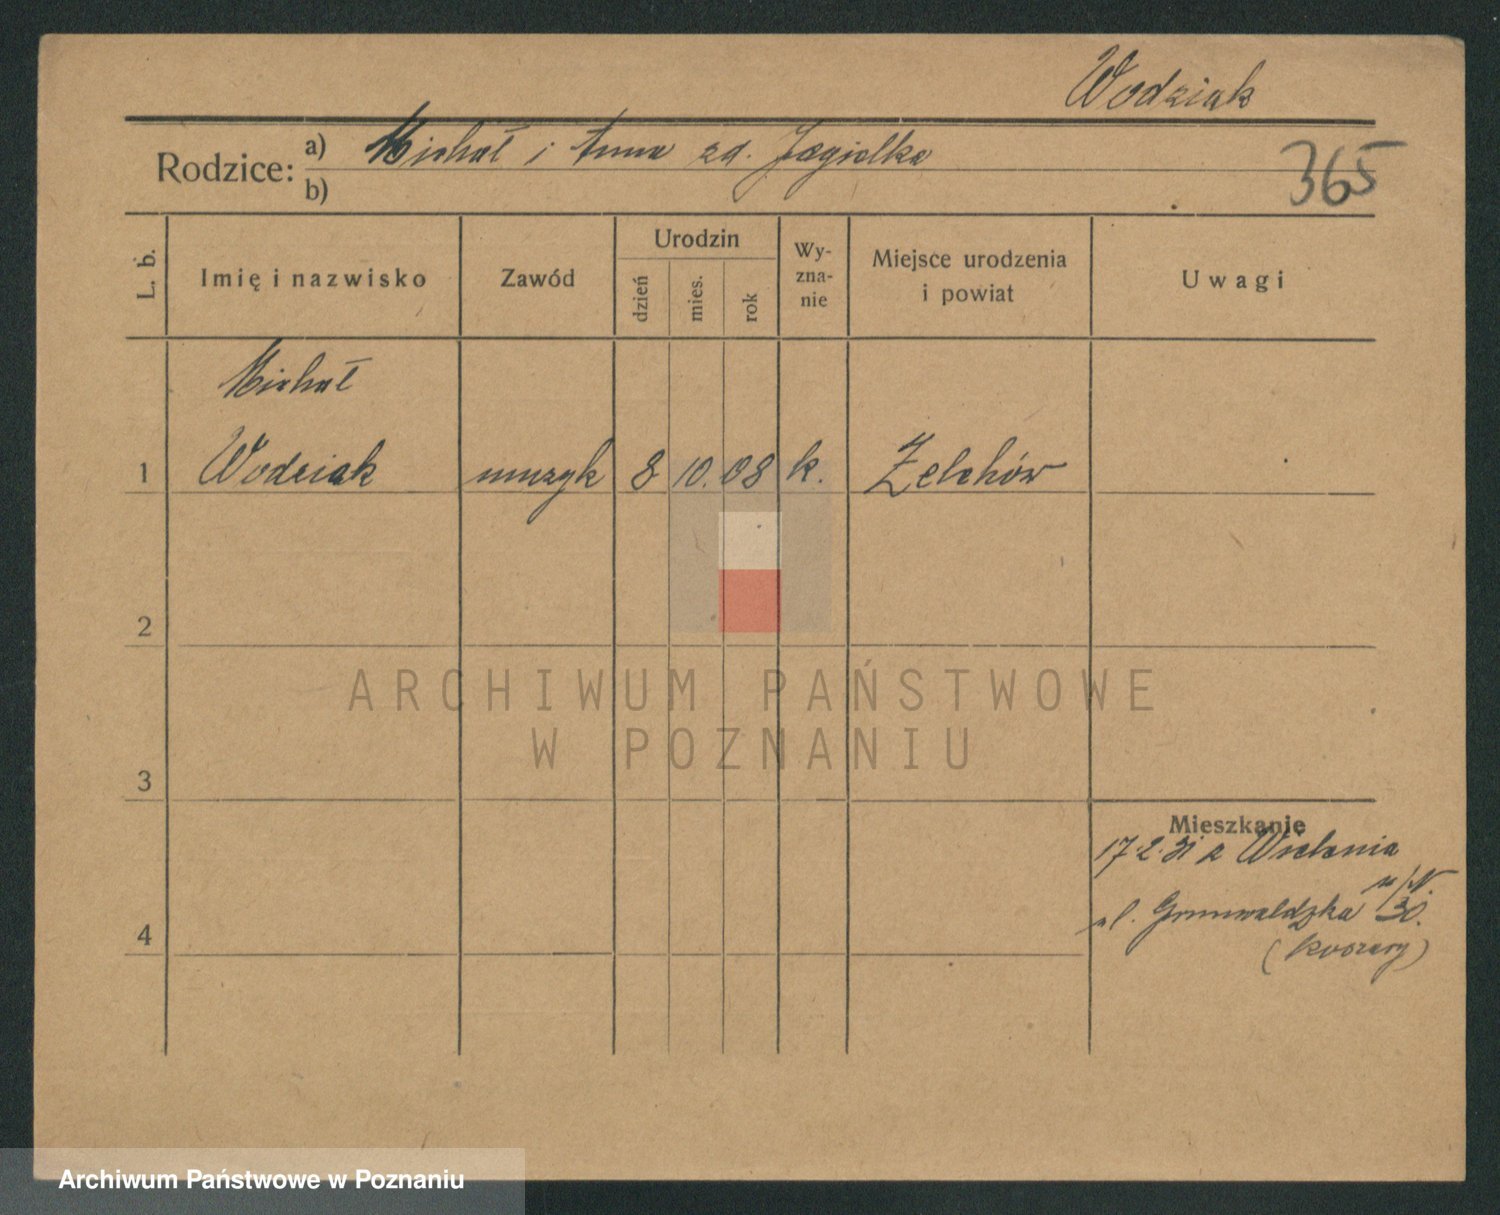 Wodziak
Rodzice:
a) Michał i Anna zd. Jagielka
b)
365
L. b.
Imię i nazwisko
Zawód
Urodzin
dzień
mies.
rok
Wy-
zna-
nie
Miejsce urodzenia
i powiat
Uwagi
Michał
1 Wodziak muzyk 8 10. 08 k. Zelchów
2
3
4
Mieszkanie
17.2.31 z Wielenia
n/N.
ul. Grunwaldzka 30.
(koszary)
ARCHIWUM PAŃSTWOWE
W POZNANIU
Archiwum Państwowe w Poznaniu